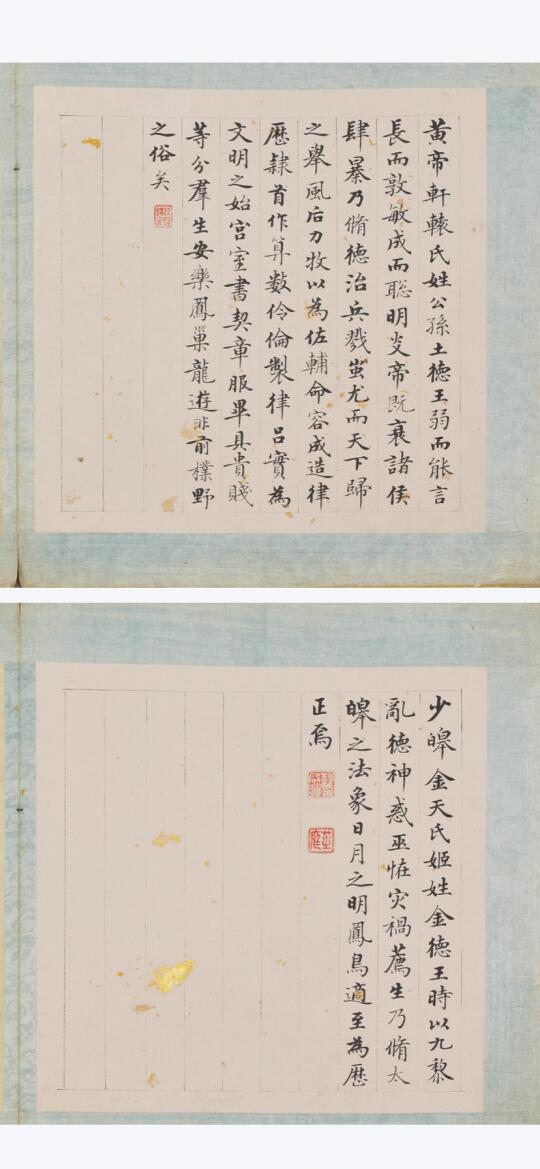 黃帝軒轅氏姓公孫土德王弱而能言
長而敦敏成而聡明炎帝既衰諸侯
肆暴乃脩德治兵戮蚩尤而天下歸
之舉風后力牧以為佐輔命容成造律
歷隸首作算數伶倫製律呂實為
文明之始宮室書契章服畢具貴賤
等分羣生安樂鳳巢龍遊非前樸野
之俗矣
少皞金天氏姬姓金德王時以九黎
亂德神惑巫恠灾禍薦生乃脩太
皞之法象日月之明鳳鳥適至為歷
正焉